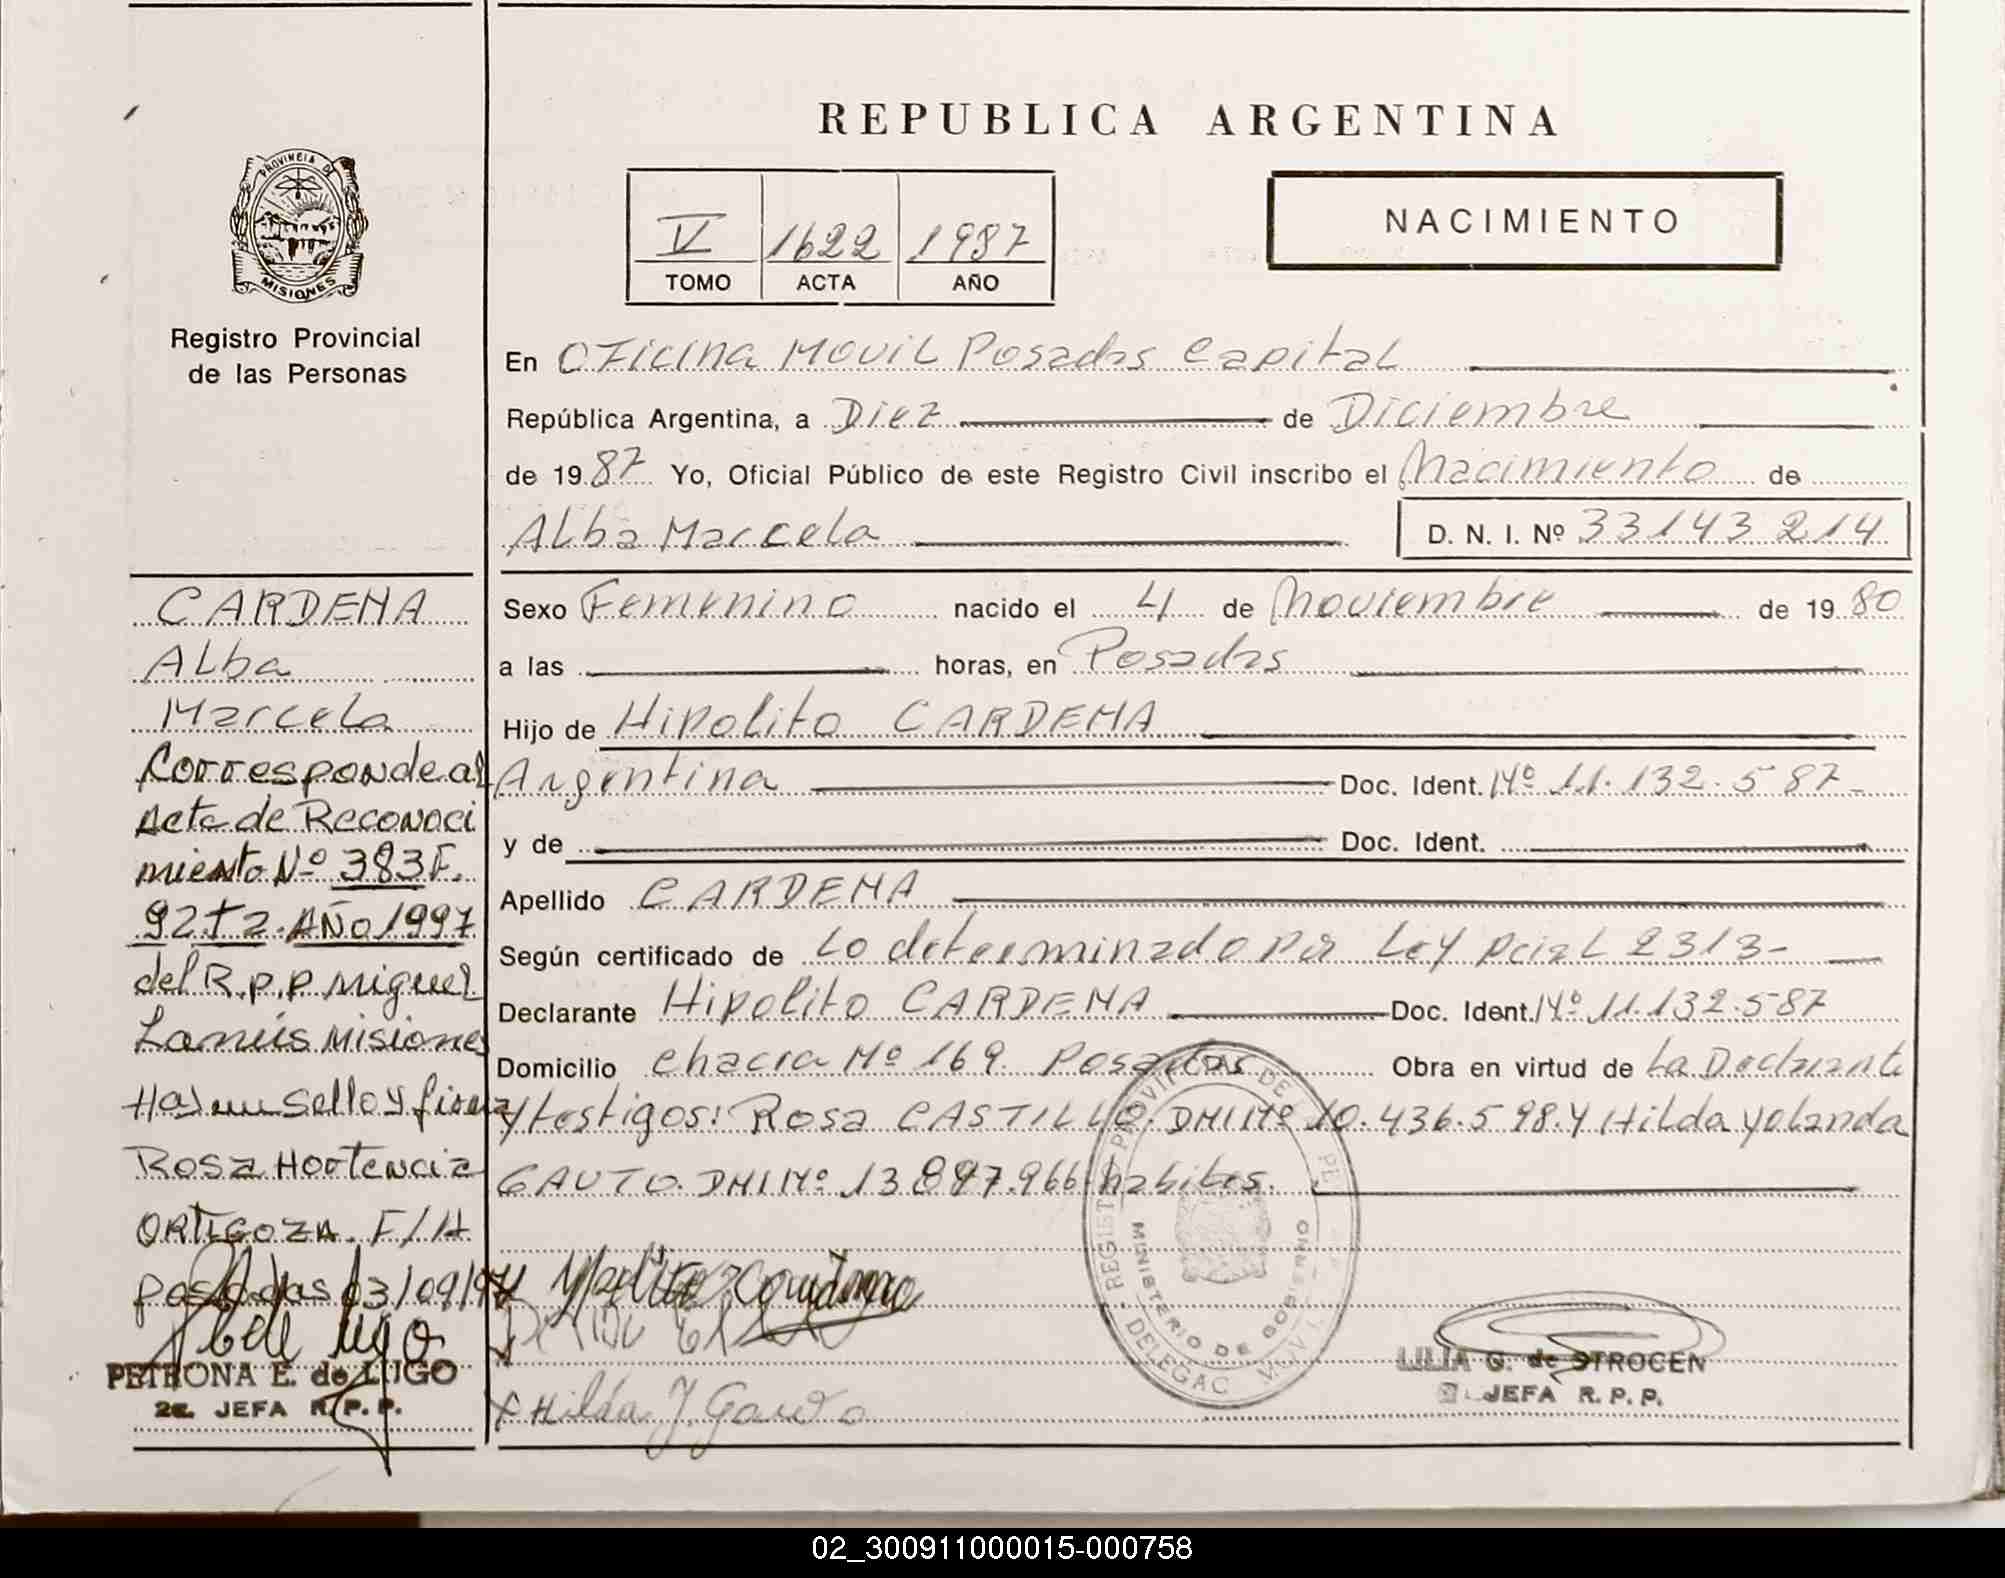 REPUBLICA ARGENTINA
PROVINCIA DE
MISIONES
Registro Provincial
de las Personas
V 1622 1987
TOMO ACTA AÑO
NACIMIENTO
En Oficina Movil Posadas Capital
República Argentina, a Diez de Diciembre
de 1987 Yo, Oficial Público de este Registro Civil inscribo el Nacimiento de
Alba Marcela D. N. I. Nº 33143214
Sexo Femenino nacido el 4 de Noviembre de 1980
a las horas, en Posadas
Hijo de Hipolito CARDENA
Argentina Doc. Ident. Nº 11.132.587
y de Doc. Ident.
Apellido CARDENA
Según certificado de Lo determinado por Ley pcial 2313-
Declarante Hipolito CARDENA Doc. Ident. Nº 11.132.587
Domicilio chacra Nº 169 Posadas Obra en virtud de La Declarante
y testigos: Rosa CASTILLO. DNI Nº 10.436.598.y Hilda Yolanda
GAUTO. DNI Nº 13.897.966 habiles.
CARDENA
Alba
Marcela
Corresponde al
Acta de Reconoci
miento Nº 383 F.
92 T 2. AÑO 1997
del R.p.p Miguel
Lanús Misiones
Hay un sello y firma
Rosa Hortencia
ORTIGOZA. F/H
Posadas 03/09/97
PETRONA E. de LUGO
2a. JEFA R.P.P.
Hilda J. Gauto
REGISTRO PROVINCIAL DE
MINISTERIO DE GOBIERNO
DELEGAC MOVIL
LILIA G. de STROCEN
JEFA R.P.P.
02_300911000015-000758